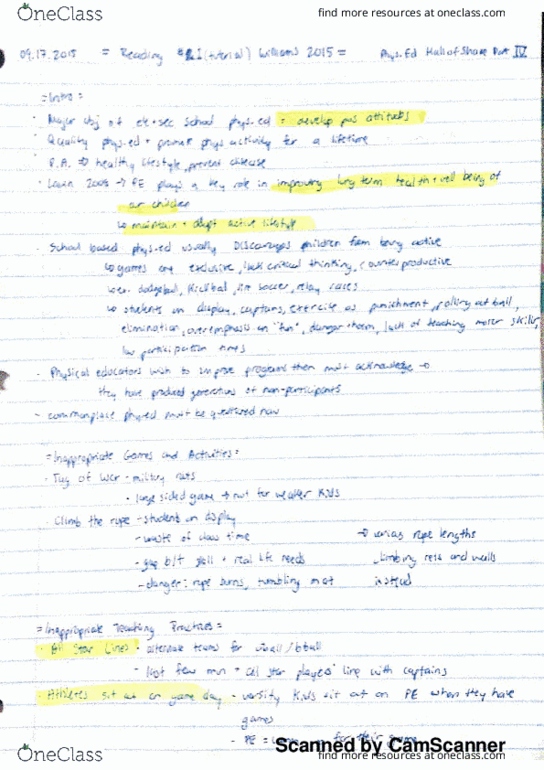 OneClass
find more resources at oneclass.com
09.17.2015 = Reading #1 (tutorial) Williams 2015 = Phys. Ed Hall of Shame Part IV
= Intro =
· Major obj of ele + sec school phys. ed = develop pos attitudes
· Quality phys. ed + promote phys activity for a lifetime
· P.A. → healthy lifestyle, prevent disease
→ PE plays a key role in improving long term health + well being of
our children
↳ maintain + adopt active lifestyle
· School based phys. ed usually DISCOURAGES children from being active
↳ games are exclusive, lack critical thinking, counterproductive
↳ ex. dodgeball, kickball, soccer, relay races
↳ students on display, captains, exercise as punishment, rolling out ball,
elimination, overemphasis on "fun", danger + harm, lack of teaching motor skills
low participation times
· Physical educators wish to improve programs then must acknowledge →
they have produced generations of non-participants
- commonplace phys. ed must be questioned now
= Inappropriate Games and Activities =
· Tug of War - military
· large sided game → not for weaker kids
· Climb the rope - student on display
- waste of class time → various rope lengths
- gap b/t skill + real life needs climbing nets and walls
- danger: rope burns, tumbling mat instead
= Inappropriate Teaching Practices =
· All Star Lines · alternate teams for vball/bball
- last few min + all star players' line with captains
· Athletes sit out on game day - varsity kids sit out on PE when they have
games
- PE = for their game
Scanned by CamScanner
OneClass
find more resources at oneclass.com